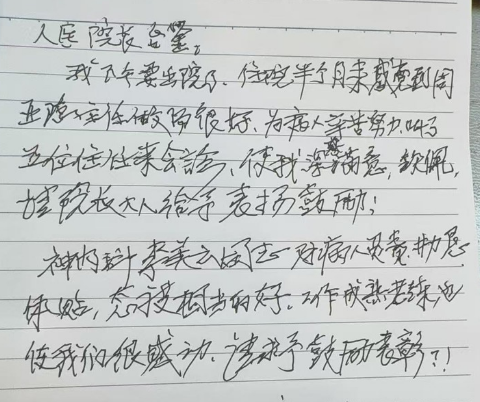 人医院长台鉴。
我下午要出院了、住院半个月来感觉到周
主任做的很好、为病人辛苦努力、叫了
五位主任来会诊、使我深感满意，钦佩，
请院长大人给予表扬鼓励！
神内科李美云同志 对病人负责、
体贴，态度相当的好、工作成熟老练
使我们很感动、请求予鼓励表彰！